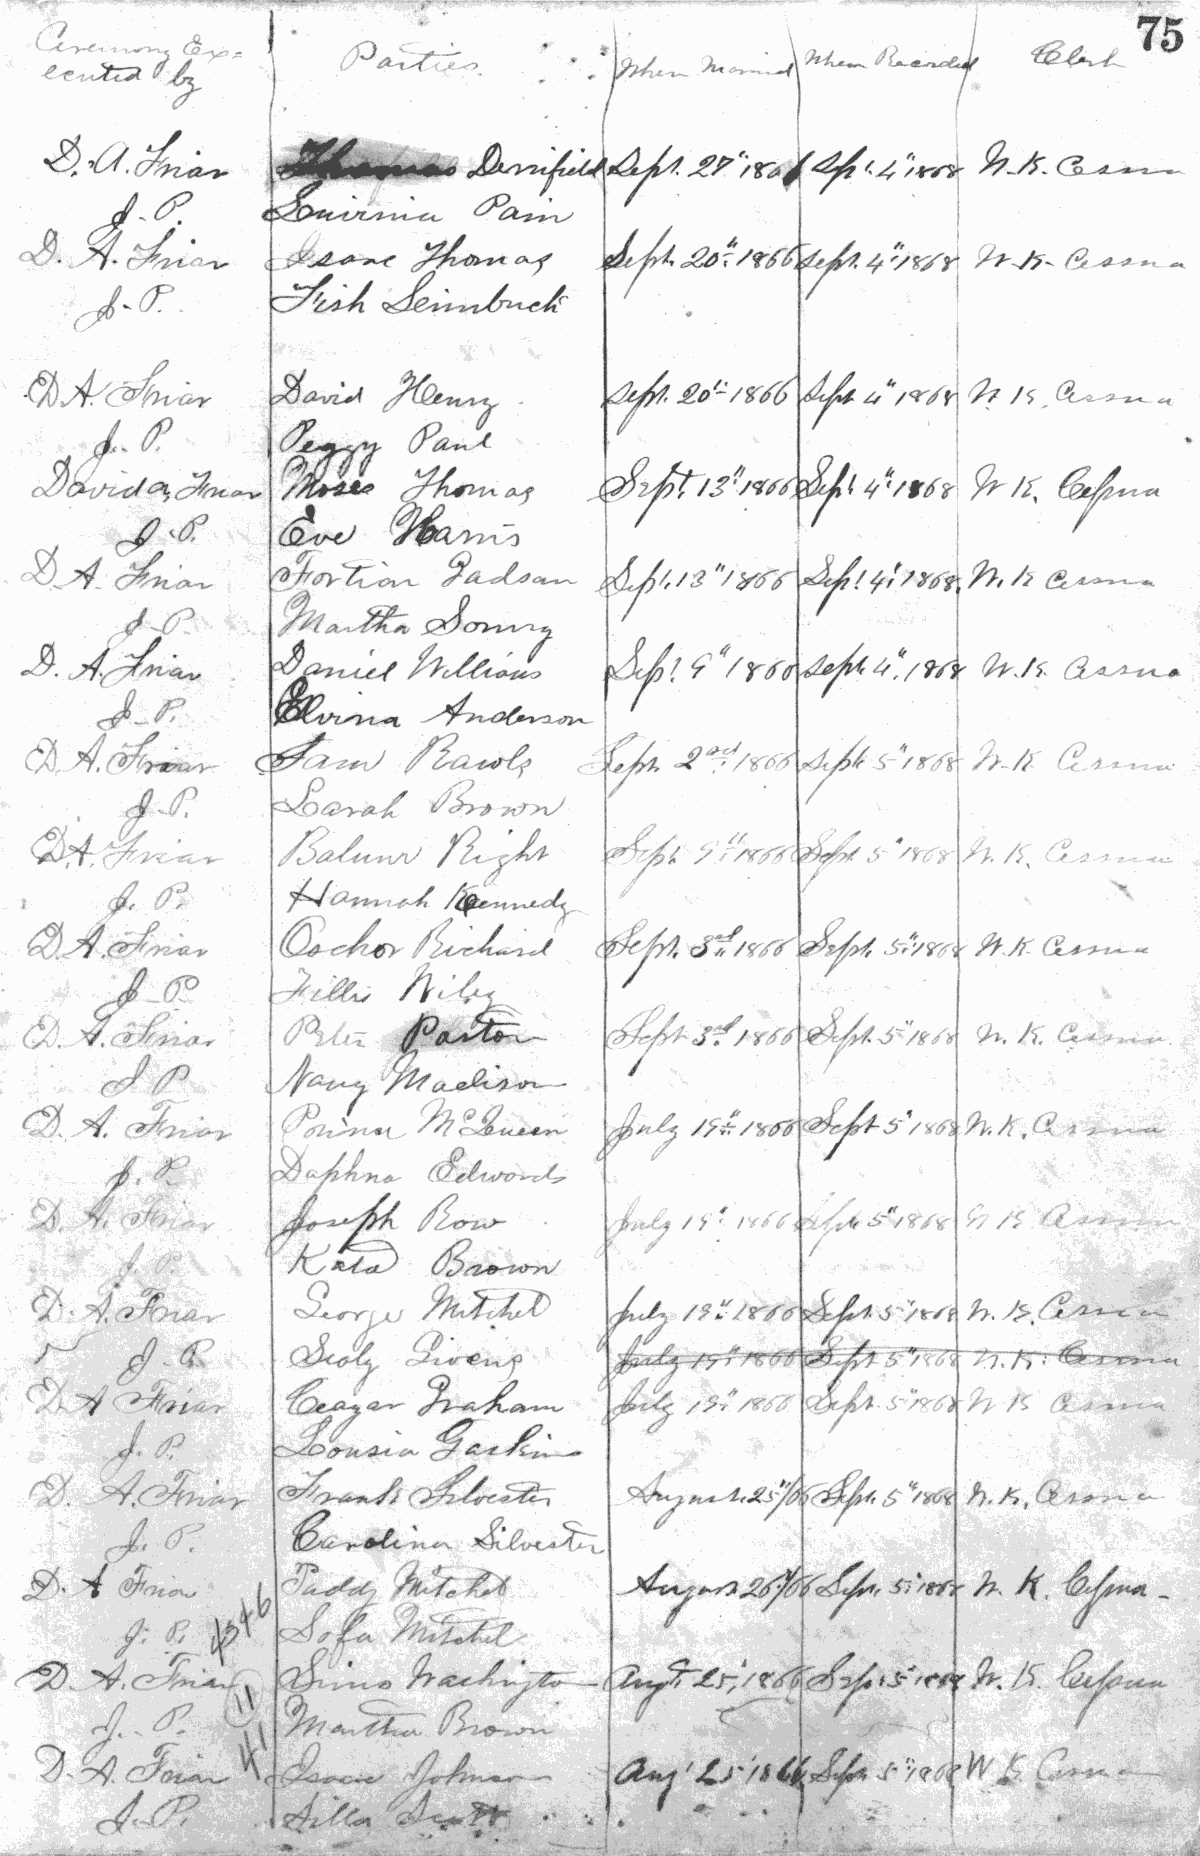 75
Ceremony Ex= Parties. When Married When Recorded Clerk
ecuted by
D. A. Friar Thomas Derrifield Sept. 27" 1866 Sept. 4" 1868 W. K. Cessna
J. P. Pain
D. A. Friar Isaac Thomas Sept. 20" 1866 Sept. 4" 1868 W. K. Cessna
J. P. Fish Seimbuck
D A. Friar David Henry Sept. 20th 1866 Sept 4" 1868 W. K. Cessna
J. P. Peggy Paul
David A. Friar Moses Thomas Sept. 13" 1866 Sept 4" 1868 W K. Cessna
J. P. Eve Harris
D A. Friar Fortian Gadsan Sept. 13" 1866 Sept 4" 1868. W. K Cessna
J. P. Martha
D. A. Friar Daniel Williams Sept. 9" 1866 Sept 4". 1868 W. K. Cessna
J. P. Elvina Anderson
D A. Friar Sam Rawls Sept. 2nd 1866 Sept 5" 1868 W. K Cessna
J. P. Sarah Brown
D. A. Friar Right Sept. 9th 1866 Sept. 5" 1868 W. K. Cessna
J. P. Hannah Kennedy
D. A. Friar Richard Sept. 3rd 1866 Sept. 5" 1868 W. K. Cessna
J. P. Fillis Wiley
D. A. Friar Peter Parton Sept 3rd 1866 Sept. 5" 1868 W. K. Cessna
J P Nancy Madison
D. A. Friar McQueen July 19th 1866 Sept 5" 1868 W. K. Cessna
J. P. Daphna Edwards
D. A. Friar Joseph Row July 19" 1866 Sept. 5" 1868 W K Cessna
J. P. Kata Brown
D. A. Friar George Mitchel July 19" 1866 Sept. 5" 1868 W. K. Cessna
J. P. Givens July 19" 1866 Sept 5" 1868 W. K. Cessna
D A Friar Ceazar Graham July 19" 1866 Sept. 5" 1868 W K Cessna
J. P. Lousia Gaskins
D. A. Friar Frank Silvester August. 25"/66 Sept. 5" 1868 W. K. Cessna
J. P. Carolina Silvester
D. A Friar Paddy Mitchel August 26"/66 Sept. 5" 1868 W. K. Cessna
J. P. 4346 Sofa Mitchel
D. A. Friar Simo Washington Augt 25, 1866 Sept 5" 1868 W. K. Cessna
J. P. 11 Martha Brown
D. A. Friar 41 Isaac Johnson Augt 25' 1866 Sept 5" 1868 W K Cessna
J. P. Silla Scott